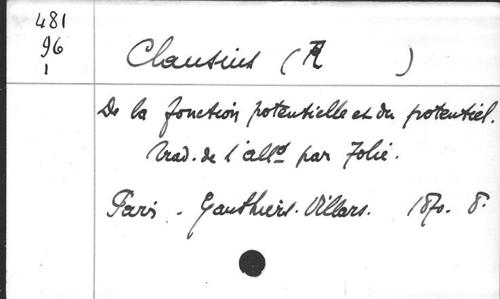 481
96
1
Clausius (R )
De la fonction potentielle et du potentiel.
trad. de l'alld par Folie.
Paris. Gauthiers. Villars. 1870. 8°.